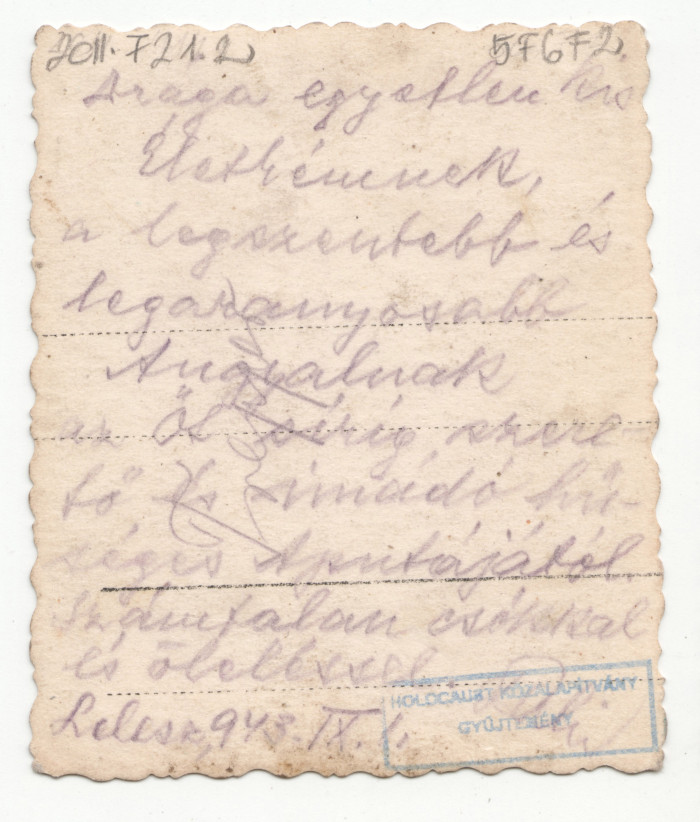 2011.721.2
5767 2.
Drága egyetlen kis
Életkémnek,
a legszentebb és
legaranyosabb
Angyalnak
az Őt sírig szere-
tő és imádó hű-
séges Aputájától
számtalan csókkal
és öleléssel.
Lelesz, 943. IX. 1.
HOLOCAUST KÖZALAPÍTVÁNY
GYŰJTEMÉNY